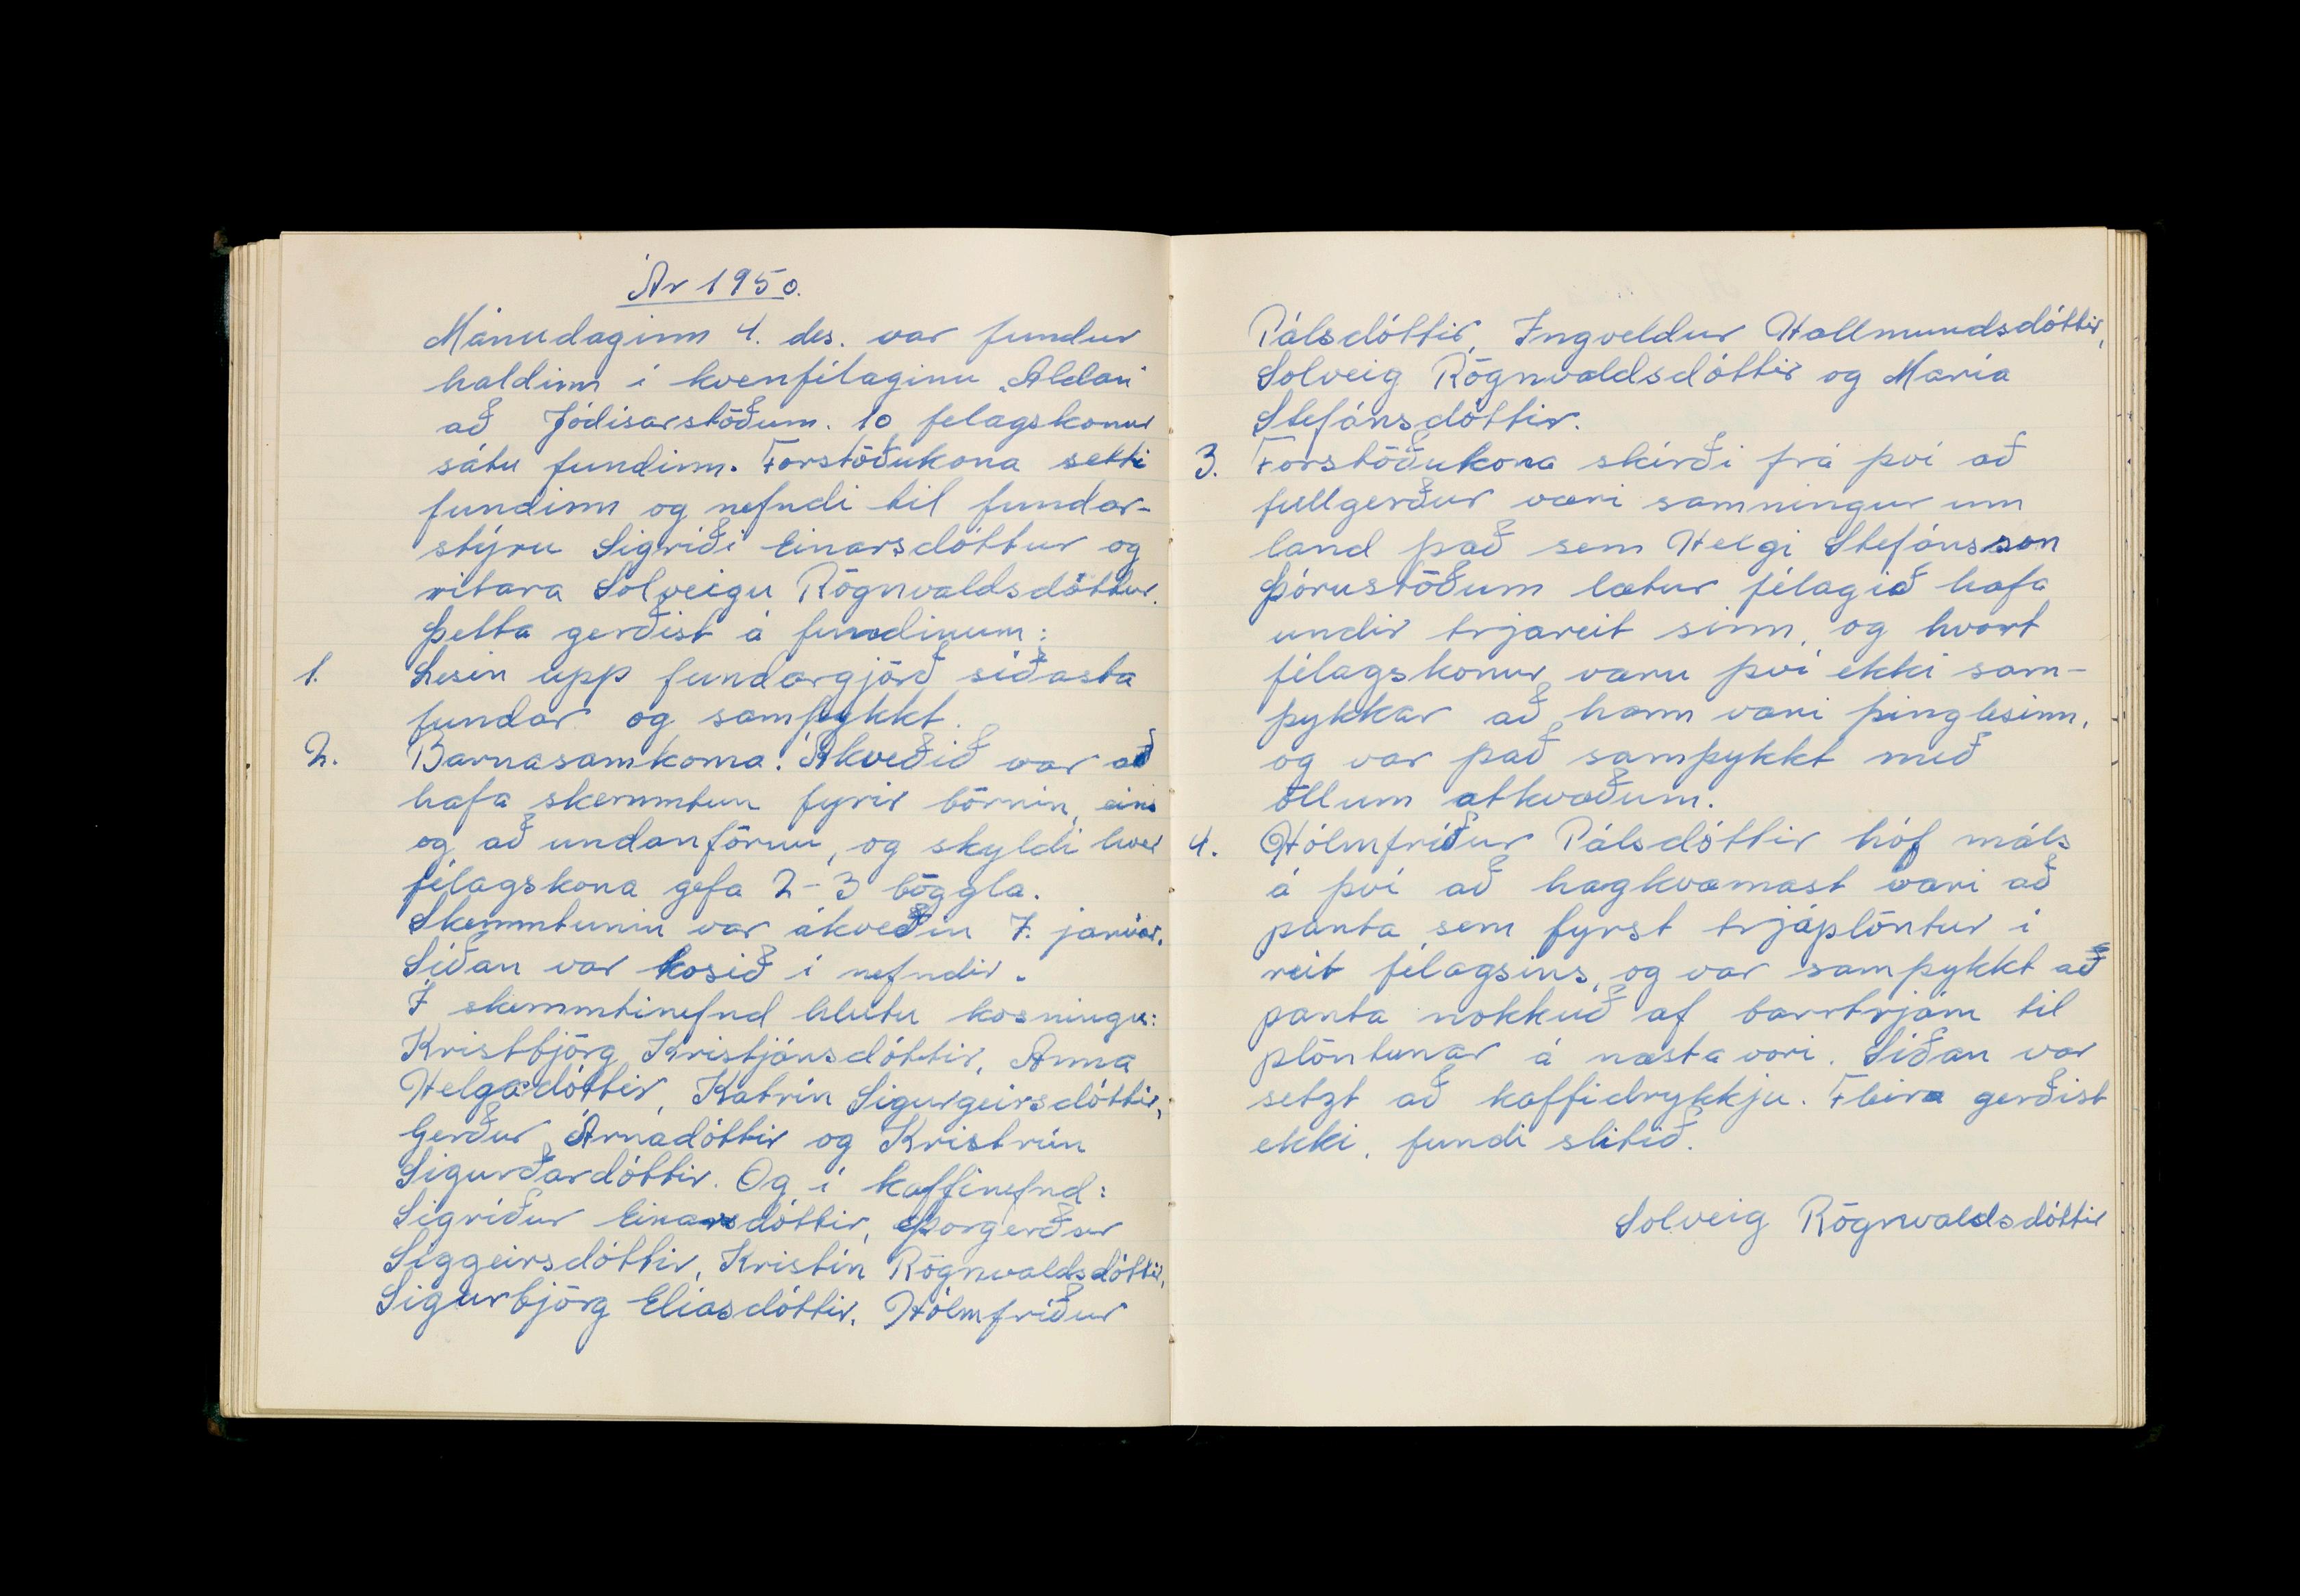 Ár 1950.
Mánudaginn 4. des. var fundur
haldinn í kvenfélaginu „Aldan"
að Jódísarstöðum. 10 felagskonur
sátu fundinn. Forstöðukona setti
fundinn og nefndi til fundar-
stýru Sigríði Einarsdóttur og
ritara Solveigu Rögnvaldsdóttur.
Þetta gerðist á fundinum:
1. Lesin upp fundargjörð síðasta
fundar og samþykkt.
2. Barnasamkoma. Ákveðið var að
hafa skemmtun fyrir börnin, eins
og að undanförnu, og skyldi hver
félagskona gefa 2-3 böggla.
Skemmtunin var ákveðin 7. janúar.
Síðan var kosið í nefndir.
Í skemmtinefnd hlutu kosningu:
Kristbjörg Kristjánsdóttir, Anna
Helgadóttir, Katrín Sigurgeirsdóttir,
Gerður Árnadóttir og Kristrún
Sigurðardóttir. Og í kaffinefnd:
Sigríður Einarsdóttir, Þorgerður
Siggeirsdóttir, Kristín Rögnvaldsdóttir,
Sigurbjörg Elíasdóttir, Hólmfríður
Pálsdóttir, Ingveldur Hallmundsdóttir,
Solveig Rögnvaldsdóttir og María
Stefánsdóttir.
3. Forstöðukona skírði frá því að
fullgerður væri samningur um
land það sem Helgi Stefánsson
Þórustöðum lætur félagið hafa
undir trjáreit sinn, og hvort
félagskonur væru því ekki sam-
þykkar að hann væri þinglesinn,
og var það samþykkt með
öllum atkvæðum.
4. Hólmfríður Pálsdóttir hóf máls
á því að hagkvæmast væri að
panta sem fyrst trjáplöntur í
reit félagsins, og var samþykkt að
panta nokkuð af barrtrjám til
plöntunar á næsta vori. Síðan var
setzt að kaffidrykkju. Fleira gerðist
ekki, fundi slitið.
Solveig Rögnvaldsdóttir